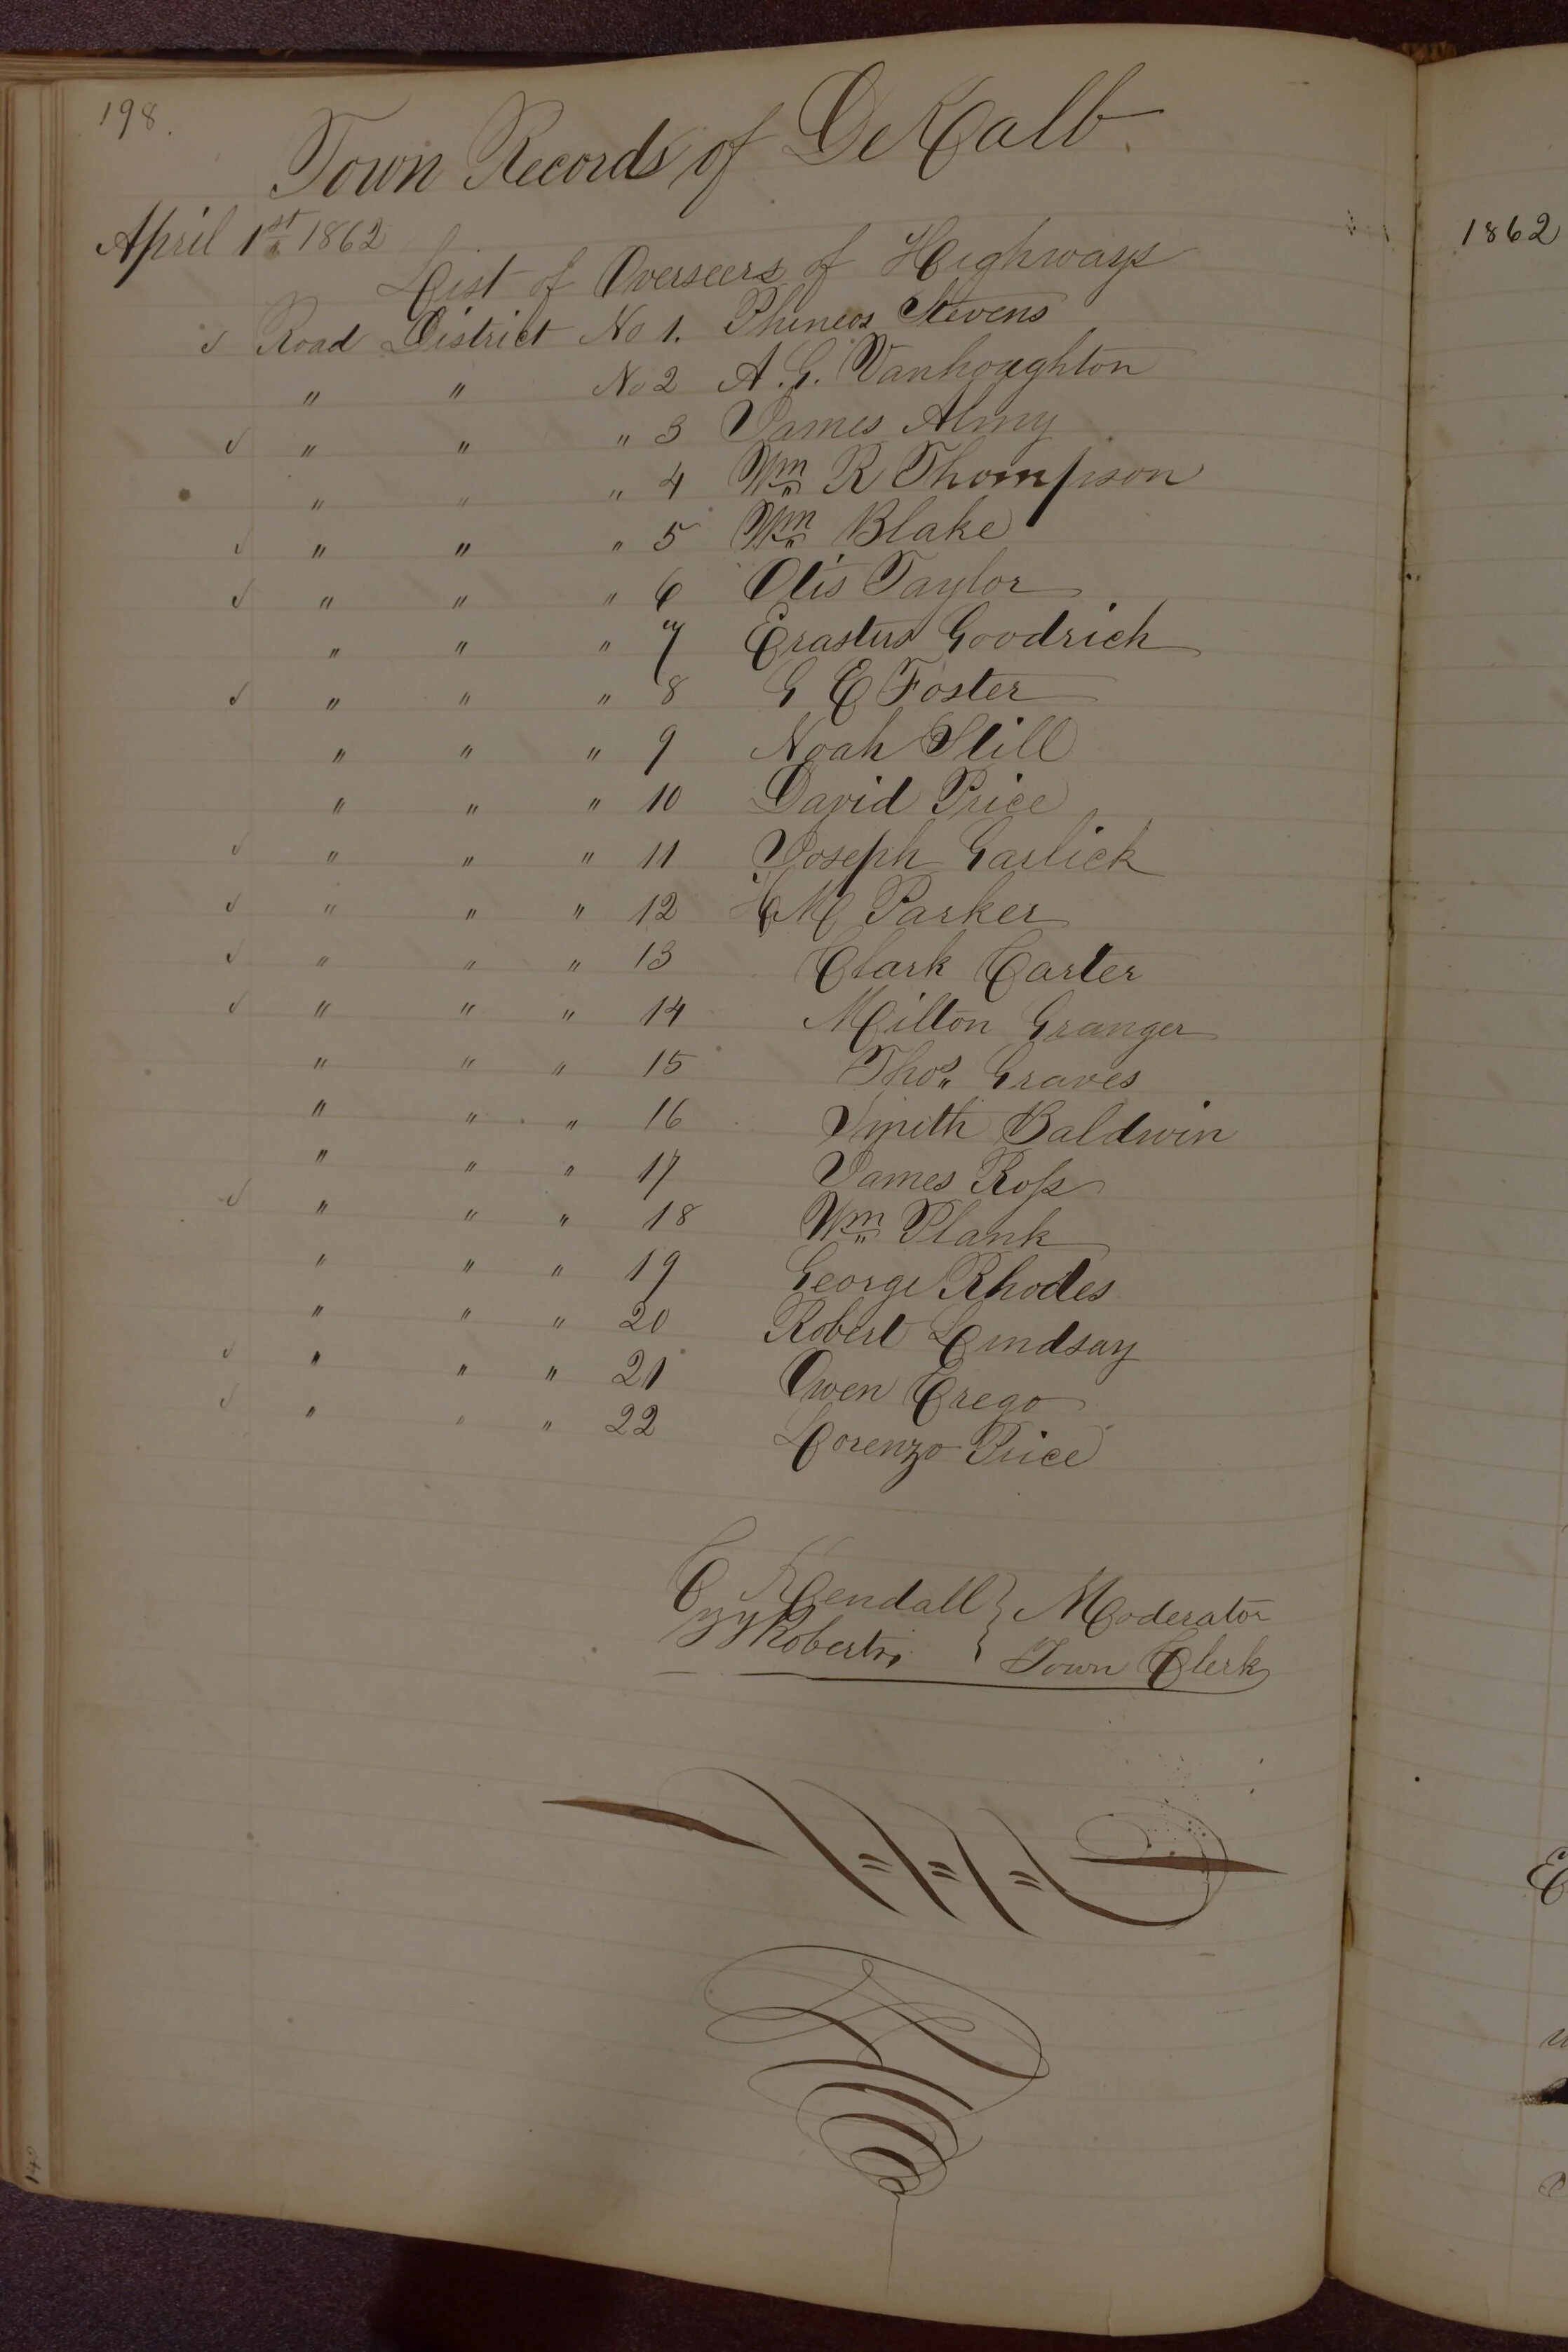 198.
Town Records of DeKalb.
April 1st 1862
List of Overseers of Highways
✓ Road District No 1. Phineas Stevens
" " No 2 A. G. Vanhoughton
✓ " " " 3 James Almy
" " " 4 Wm R Thompson
✓ " " " 5 Wm Blake
✓ " " " 6 Otis Taylor
" " " 7 Erastus Goodrich
✓ " " " 8 G E Foster
" " " 9 Noah Still
" " " 10 David Price
✓ " " " 11 Joseph Garlick
✓ " " " 12 H M Parker
✓ " " " 13 Clark Carter
✓ " " " 14 Milton Granger
" " " 15 Thos. Graves
" " " 16 Smith Baldwin
" " " 17 James Ross
✓ " " " 18 Wm Plank
" " " 19 George Rhodes
" " " 20 Robert Lindsay
✓ " " " 21 Owen Crego
✓ " " " 22 Lorenzo Price
C Kendall } Moderator
Roberts } Town Clerk
1862